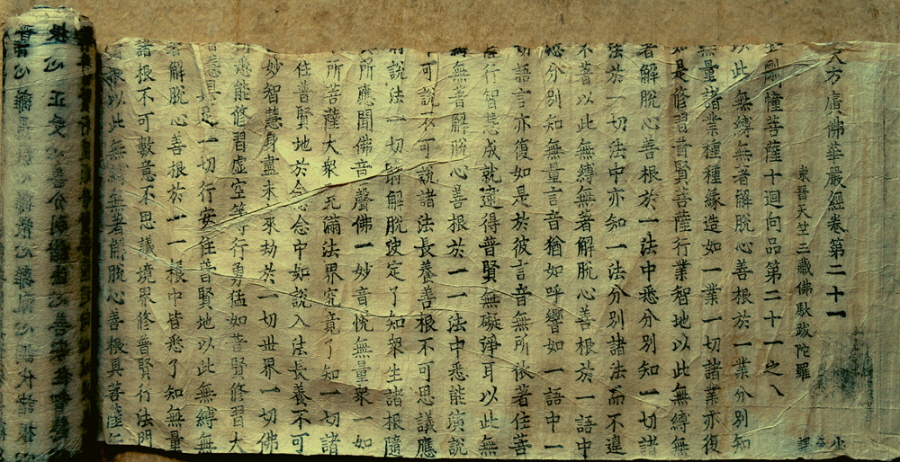 大方廣佛華嚴經卷第二十一
東晉天竺三藏佛馱跋陀羅 譯
金剛幢菩薩十迴向品第二十一之八
以此無縛無著解脫心善根於一業分別知
無量諸業種種緣造如一業一切諸業亦復
如是修習普賢菩薩行業智地以此無縛無
著解脫心善根於一法中悉分別知一切諸
法於一切法中亦知一法分別諸法而不違
不著以此無縛無著解脫心善根於一語中
悉分別知無量言音猶如呼響如一語中一
切語言亦復如是於彼言音無所依著住菩
薩行智慧成就逮得普賢無礙淨耳以此無
縛無著解脫心善根於一一法中悉能演說
可說不可說諸法長養善根不可思議應
時說法一切時解脫決定了知衆生諸根隨
其所應聞佛音聲佛一妙音悅無量衆一如
所菩薩大衆充滿法界究竟了知一切諸
住普賢地於念念中如說入法長養不可
妙智慧身盡未來劫於一切世界一切佛
悉能修習虛空等行勇猛如普賢修習大
具足一切行安住普賢地以此無縛無
著解脫心善根於一一根中皆悉了知無量
諸根不可數意不思議境界修普賢行法門
以此無縛無著解脫心善根具菩薩